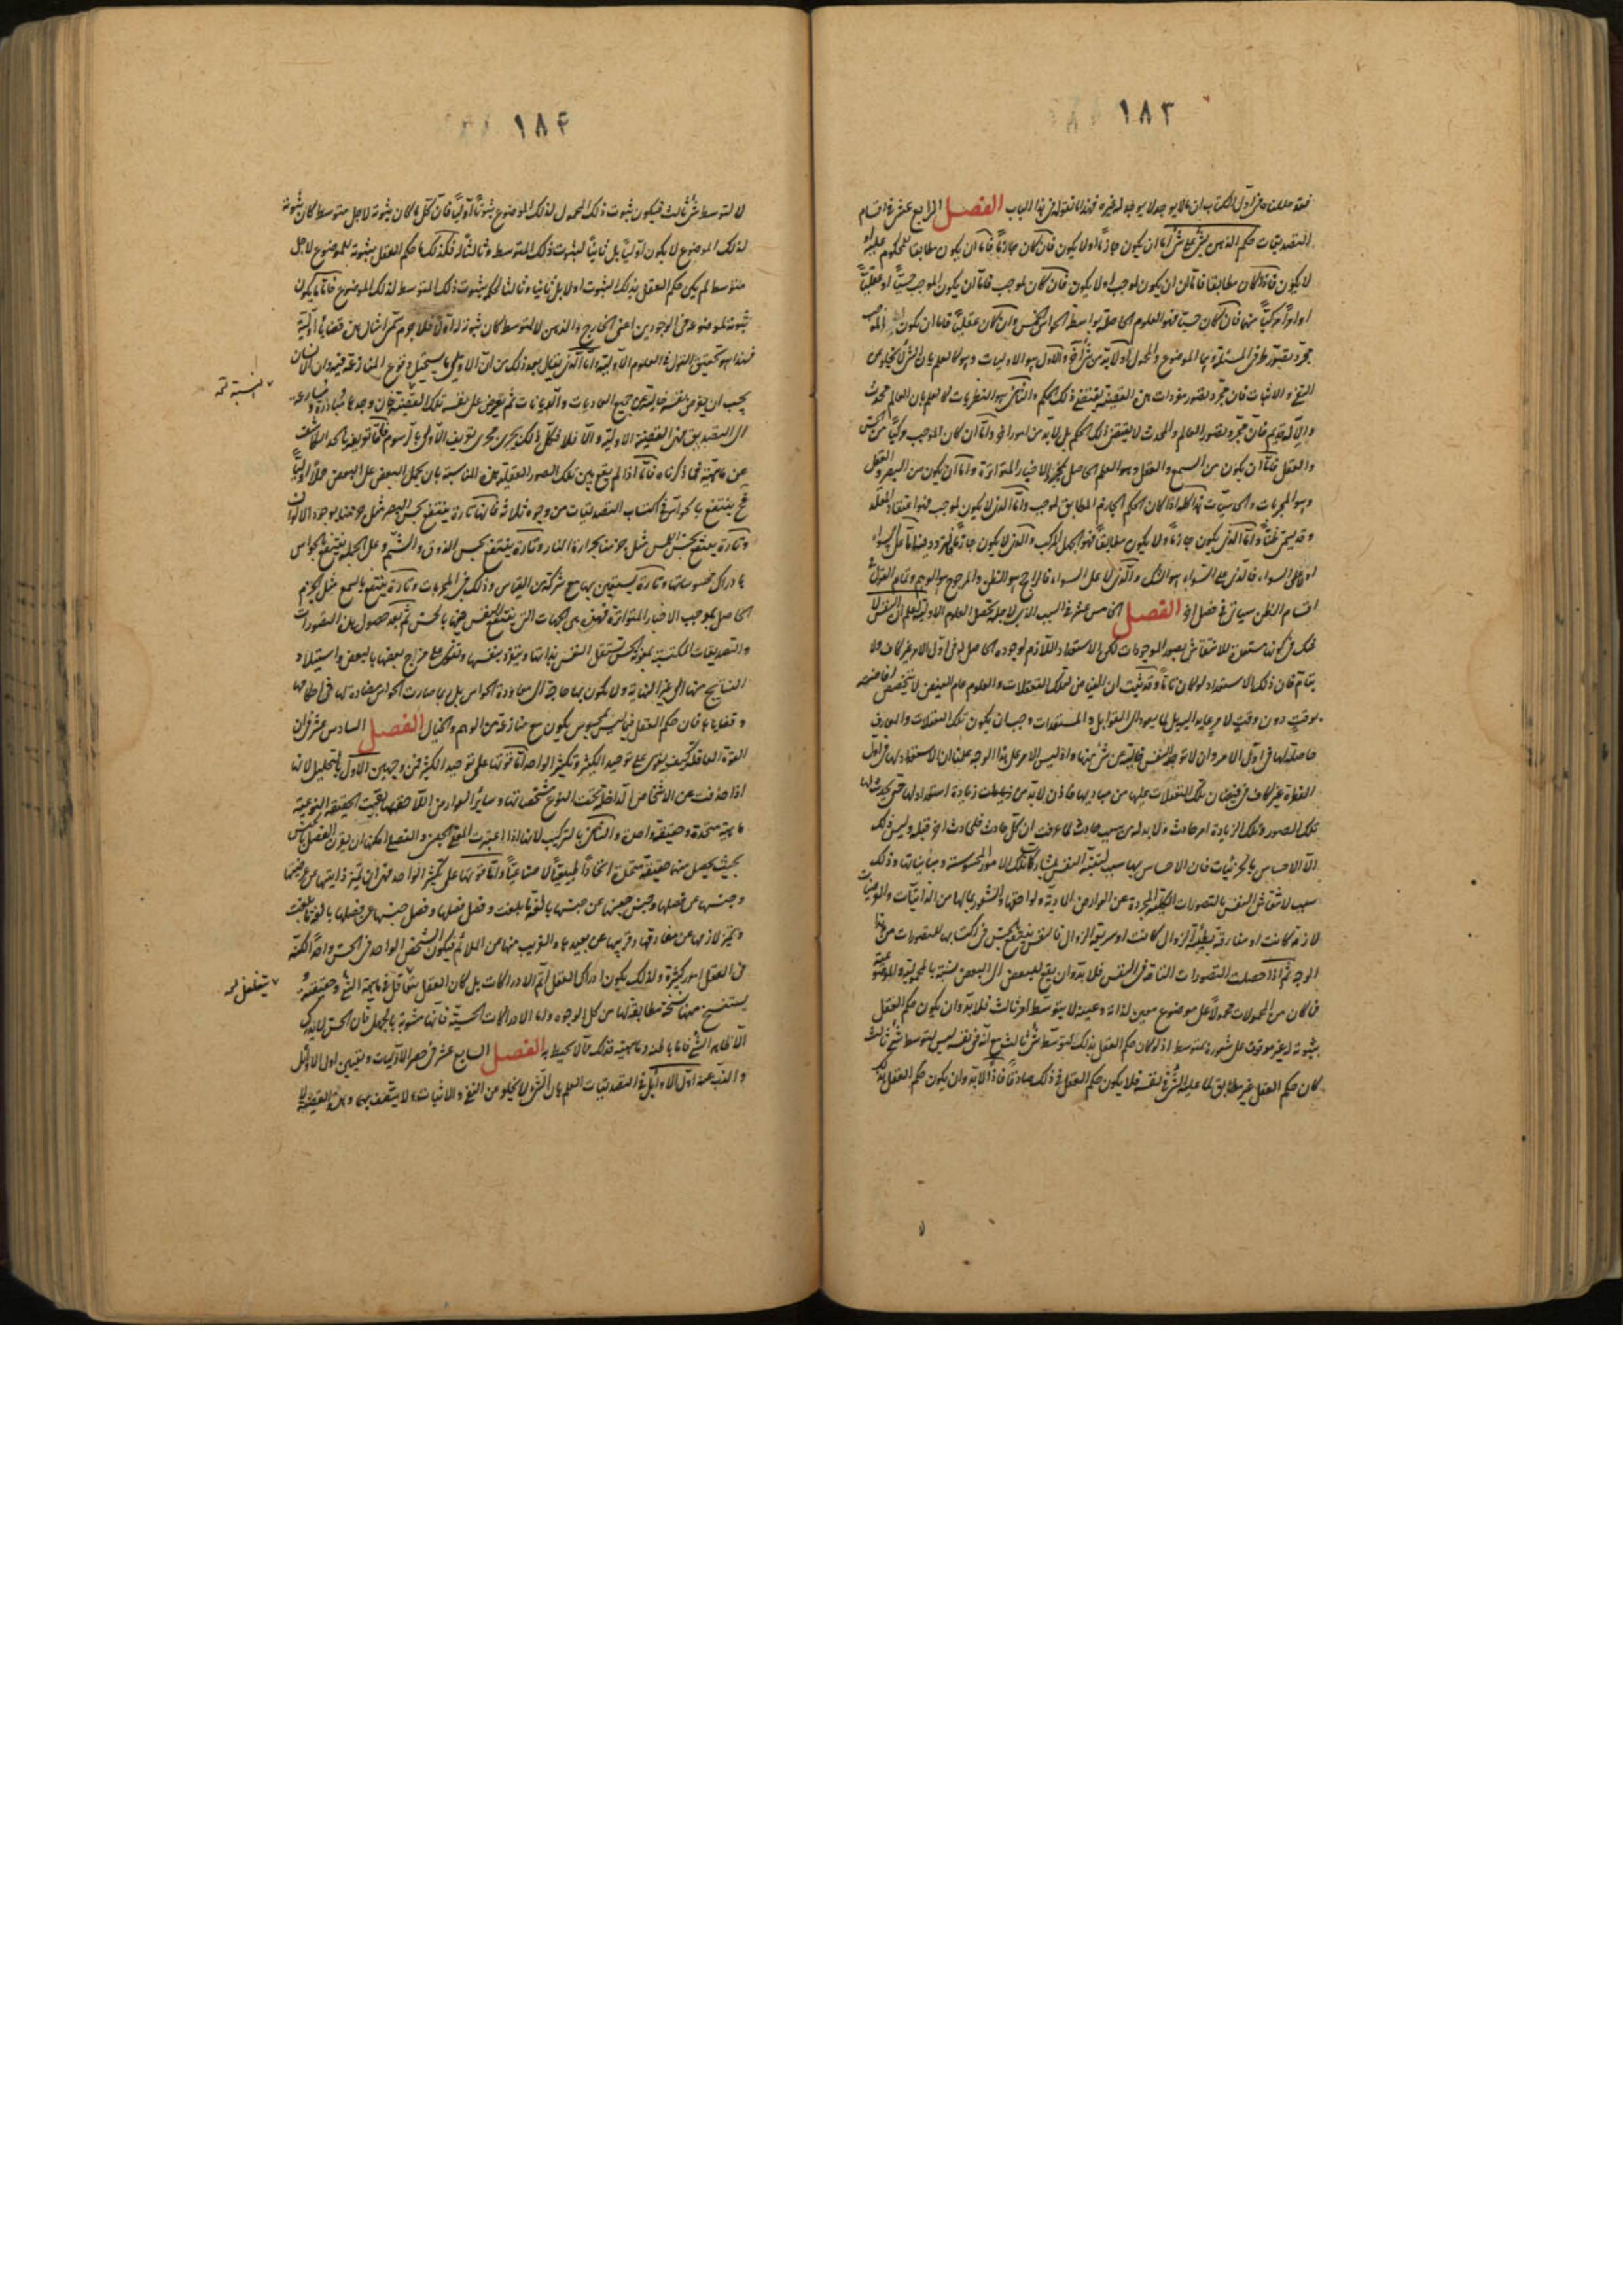 ١٨٣
فقد عللنا فى اول الكتاب ان مالا يوجد لا يوجد لغيره فهذا ما نقوله فى هذا الباب الفصل الرابع عشر فى اقسام
التصديقات حكم الذهن بشئ على شئ اما ان يكون جازمًا او لا يكون فان كان جازمًا فاما ان يكون مطابقا للمحكوم عليه او
لا يكون فاذا كان مطابقا فاما ان يكون لموجب او لا يكون فان كان لموجب فاما ان يكون الموجب حسيًا او عقليًا
او امرًا مركبًا منهما فان كان حسيًا فهو العلوم الحاصلة بواسطة الحواس الخمس وان كان عقليًا فاما ان يكون الموجب
مجرد تصور طرفى المسئلة وهما الموضوع والمحمول او لا بد من شئ آخر والاول هو الاوليات وهو كالعلم بان الشئ لا يخلو عن
النفى والاثبات فان مجرد تصور مفردات هذه القضية يقتضى ذلك الحكم والثانى هو النظريات كالعلم بان العالم محدث
والاله قديم فان مجرد تصور العالم والمحدث لا يقتضى ذلك الحكم بل لا بد من امور اخر واما ان كان الموجب مركبًا من الحس
والعقل فاما ان يكون من السمع والعقل وهو العلم الحاصل بمجرد الاخبار المتواترة واما ان يكون من البصر والعقل
وهو المجربات والحدسيات هذا كله اذا كان الحكم الجازم المطابق لموجب واما الذى لا يكون لموجب فهو اعتقاد المقلد
وقد يسمى ظنًا واما الذى يكون جازمًا ولا يكون مطابقًا فهو الجهل المركب والذى لا يكون جازمًا فالتردد فيه اما على السواء
او لا على السواء فالذى على السواء هو الشك والذى لا على السواء فالراجح هو الظن والمرجوح هو الوهم وتمام القول فى
اقسام الظن سيأتى فى فصل آخر الفصل الخامس عشر فى السبب الذى لاجله تحصل العلوم الاولية اعلم ان النفس لا
شك فى كونها مستعدة للانتقاش بصور الموجودات لكن الاستعداد اللازم لوجودها الحاصل لها فى اول الامر غير كاف ولا
تام فان ذلك الاستعداد لو كان تامًا وقد ثبت ان المفيض لتلك التعقلات والعلوم عام الفيض لا يتخصص افاضته
بوقت دون وقت لامر عايد اليه بل لما يعود الى القوابل والمستعدات وجب ان يكون تلك التعقلات والمعارف
حاصلة لها فى اول الامر وان لا توجد النفس خالية عن شئ منها واذ ليس الامر على هذا الوجه علمنا ان الاستعداد لها فى اول
الفطرة غير كاف فى فيضان تلك التعقلات عليها من مباديها فاذن لا بد من زيادة استعداد لها حتى تحدث لها
تلك الصور وتلك الزيادة امر حادث ولا بد له من سبب حادث لما عرفت ان كل حادث فلحادث آخر قبله وليس ذلك
الا الاحساس بالجزئيات فان الاحساس بها سبب لتنبه النفس لمشاركات تلك الامور المحسوسة ومبايناتها وذلك
سبب لانتقاش النفس بالتصورات الكلية المجردة عن العوارض المادية ولواحقها والشعور بما لها من الذاتيات والعرضيات
لازمة كانت او مفارقة بطيئة الزوال كانت او سريعة الزوال فالنفس تنتفع بالحس فى اكتسابها للتصورات من هذا
الوجه ثم اذا حصلت التصورات التامة فى النفس فلا بد وان يقع للبعض الى البعض نسبة بالمحمولية والموضوعية
فما كان من المحمولات محمولاً على موضوع معين لذاته وعينه لا بتوسط امر ثالث فلا بد وان يكون حكم العقل
بثبوته له غير موقوف على شعوره بمتوسط اذ لو كان حكم العقل بذلك لمتوسط شئ ثالث مع انه فى نفسه ليس لمتوسط شئ ثالث
كان حكم العقل غير مطابق لما عليه الشئ فى نفسه فلا يكون حكم العقل فى ذلك صادقًا فاذًا لا بد وان يكون حكم العقل بذلك
١٨۴
لا لمتوسط شئ ثالث فيكون ثبوت ذلك المحمول لذلك الموضوع ثبوتًا اوليًا فان كل ما كان ثبوته لاجل متوسط كان ثبوته
لذلك الموضوع لا يكون اوليًا بل ثانيًا لثبوت ذلك المتوسط وثالثًا له فكذلك ما حكم العقل بثبوته للموضوع لاجل
متوسط لم يكن حكم العقل بذلك الثبوت اولا بل ثانيا وثالثا لحكمه بثبوت ذلك المتوسط لذلك الموضوع فاما ما يكون
ثبوته لموضوعه فى الوجودين اعنى الخارج والذهن لا لمتوسط كان ثبوته له اولا فلا جرم سمى امثال هذه قضايا اولية
فهذا هو تحقيق القول فى العلوم الاولية واما الذى يقال بعد ذلك من ان الاولى ما يستحيل وقوع المنازعة فيه وان الانسان
يجب ان يفرض نفسه خالية عن جميع العاديات والديانات ثم يعرض على نفسه تلك القضية فان وجدها مبادرة مسارعة
الى التصديق فهى القضية الاولية والا فلا فكل ذلك يجرى مجرى تعريف الاولى بالرسوم فاما تعريفه بالحد الكاشف
عن ماهيته فما ذكرناه فاما اذا لم يقع بين تلك الصور العقلية هذه المناسبة بان يحمل البعض على البعض حملًا اوليًا
فح ينتفع بالحواس فى اكتساب التصديقات من وجوه ثلاثة فانها تارة ينتفع بحس البصر مثل جزمنا بوجود الالوان
وتارة ينتفع بحس اللمس مثل جزمنا بحرارة النار وتارة ينتفع بحس الذوق والشم وعلى الجملة ينتفع بالحواس
فى ادراك محسوساتها وتارة يستعين بها مع شركة من القياس وذلك فى المجربات وتارة ينتفع بالسمع مثل الجزم
الحاصل بموجب الاخبار المتواترة فهذه هى الجهات التى ينتفع النفس فيها بالحس ثم بعد حصول هذه التصورات
والتصديقات المكتسبة بمعونة الحس تستقل النفس بذاتها وتنفرد بنفسها وتقوى على مزاج بعضها بالبعض واستيلاد
النتايج منها الى غير النهاية ولا يكون بها حاجة الى معاودة الحواس بل ربما صارت الحواس مضادة لها فى احكامها
وقضاياها فان حكم العقل فيما ليس بمحسوس يكون مع منازعة من الوهم والخيال الفصل السادس عشر فى ان
القوة العاقلة كيف تقوى على توحيد الكثير وتكثير الواحد اما قوتها على توحيد الكثير فمن وجهين الاول بالتحليل لانها
اذا حذفت عن الاشخاص الداخلة تحت النوع مشخصاتها وسائر العوارض اللاحقة بها بقيت الحقيقة النوعية
ماهية متحدة وحقيقة واحدة والثانى بالتركيب لانها اذا اعتبرت المعنى الجنسى والفصلى امكنها ان تقرن الفصل بالجنس
بحيث يحصل منهما حقيقة متحدة اتحادًا طبيعيًا لا صناعيًا واما قوتها على تكثير الواحد فهى ان تميز ذاتيتها عن عرضيتها
وجنسها عن فصلها وجنس جنسها عن جنسها بالغة ما بلغت وفصل فصلها وفصل جنسها عن فصلها بالغة ما بلغت
وتميز لازمها عن مفارقها وقريبها عن بعيدها والغريب منها من الملائم فيكون الشخص الواحد فى الحس واحدًا لكنه
فى العقل امور كثيرة ولذلك يكون ادراك العقل اتم الادراكات بل كان العقل يتغلغل فى ماهية الشئ وحقيقته و
يستنسخ منها نسخة مطابقة لها من كل الوجوه واما الادراكات الحسية فانها مشوبة بالجهل فان الحس لا يدرك
الا ظاهر الشئ فاما باطنه وماهيته فذلك مما لا يحيط به الفصل السابع عشر فى حصر الاوليات وتعيين اول الاوائل
والذب عنه اول الاوائل فى التصديقات العلم بان الشئ لا يخلو عن النفى والاثبات ولا يتصف بهما وهذه القضية لا